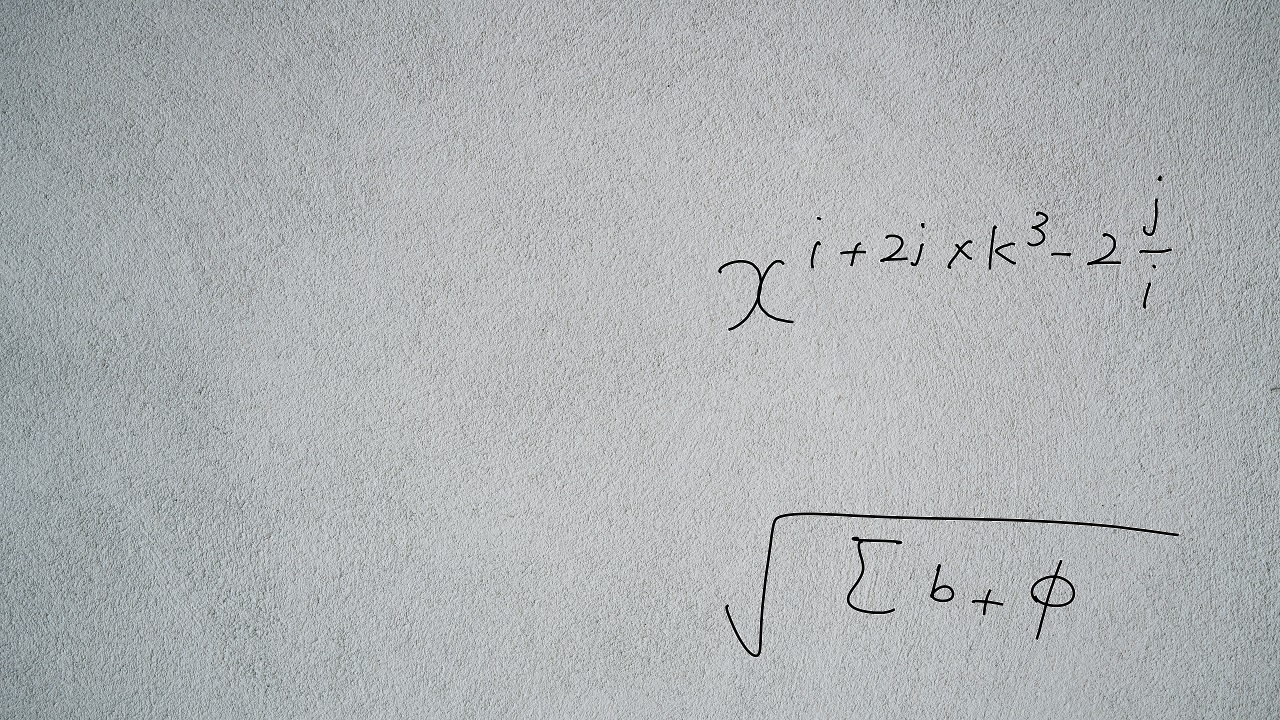 $x^{i+2j \times k^{3}-2\frac{j}{i}}$
$\sqrt{\sum b+\phi}$